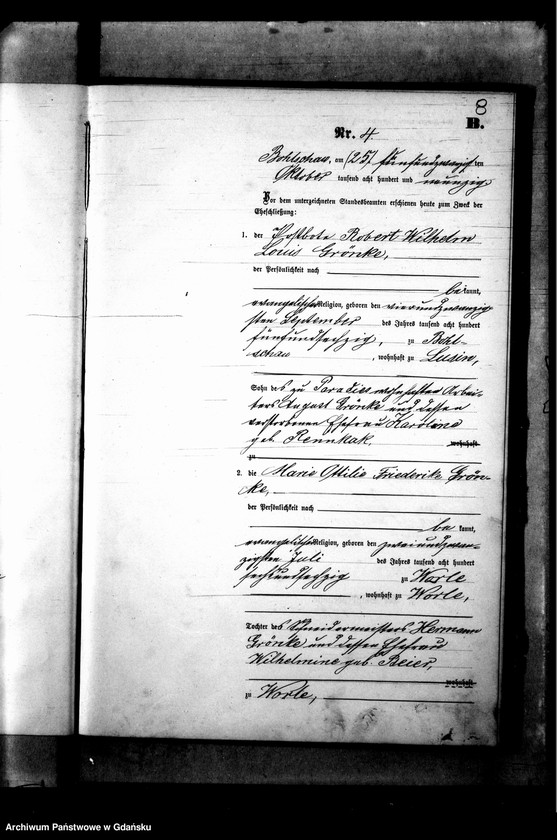 8
B.
Nr. 4
Bohlschau, am (25) fünfundzwanzigsten
Oktober tausend acht hundert und neunzig
Vor dem unterzeichneten Standesbeamten erschienen heute zum Zweck der
Eheschließung:
1. der Postbote Robert Wilhelm
Louis Grönke,
der Persönlichkeit nach
bekannt,
evangelischer Religion, geboren den vierundzwanzig
sten September des Jahres tausend acht hundert
fünfundsechzig, zu Bohl-
schau, wohnhaft zu Lusin,
Sohn des zu Paradies wohnhaften Arbei-
ters August Grönke und dessen
verstorbenen Ehefrau Karoline
geb. Rennkak, wohnhaft
zu
2. die Marie Ottilie Friederike Grön-
ke,
der Persönlichkeit nach
bekannt,
evangelischer Religion, geboren den zweiundzwan-
zigsten Juli des Jahres tausend acht hundert
sechsundsechzig zu Worle
, wohnhaft zu Worle,
Tochter des Schneidermeisters Hermann
Grönke und dessen Ehefrau
Wilhelmine geb. Beier,
wohnhaft
zu Worle,
Archiwum Państwowe w Gdańsku